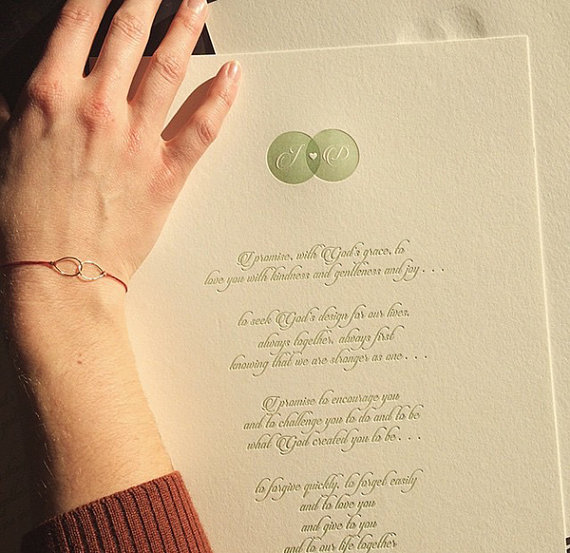 I ♥ D
I promise, with God's grace, to
love you with kindness and gentleness and joy . . .
to seek God's design for our lives,
always together, always first
knowing that we are stronger as one . . .
I promise to encourage you
and to challenge you to do and to be
what God created you to be . . .
to forgive quickly, to forget easily
and to love you
and give to you
and to our life together